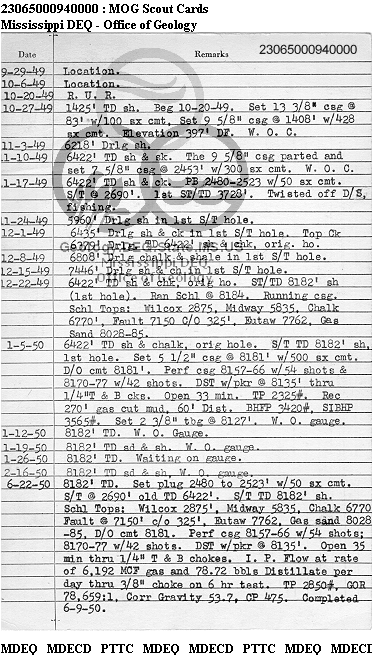 23065000940000 : MOG Scout Cards
Mississippi DEQ - Office of Geology
Date Remarks 23065000940000
9-29-49 Location.
10-6-49 Location.
10-20-49 R. U. R.
10-27-49 1425' TD sh. Beg 10-20-49. Set 13 3/8" csg @
83' w/100 sx cmt, Set 9 5/8" csg @ 1408' w/428
sx cmt. Elevation 397' DF. W. O. C.
11-3-49 6218' Drlg sh.
1-10-49 6422' TD sh & sk. The 9 5/8" csg parted and
set 7 5/8" csg @ 2453' w/300 sx cmt. W. O. C.
1-17-49 6422' TD sh & ck. PB 2480-2523 w/50 sx cmt.
S/T @ 2690'. 1st ST/TD 3728'. Twisted off D/S,
fishing.
11-24-49 5960' Drlg sh in 1st S/T hole.
12-1-49 6435' Drlg sh & ck in S/T hole. Top Ck
6370'. Drlg. TD 6422' sh & chk, orig. ho.
12-8-49 6808' Drlg chalk & shale in 1st S/T hole.
12-15-49 7446' Drlg sh & ch in 1st S/T hole.
12-22-49 6422' TD sh & chk, orig ho. ST/TD 8182' sh
(1st hole). Ran Schl @ 8184. Running csg.
Schl Tops: Wilcox 2875, Midway 5835, Chalk
6770', Fault 7150 C/O 325', Eutaw 7762, Gas
Sand 8028-85.
1-5-50 6422' TD sh & chalk, orig hole. S/T TD 8182' sh,
1st hole. Set 5 1/2" csg @ 8181' w/500 sx cmt.
D/O cmt 8181'. Perf csg 8157-66 w/54 shots &
8170-77 w/42 shots. DST w/pkr @ 8135' thru
1/4"T & B cks. Open 33 min. TP 2325#. Rec
270' gas cut mud, 60' Dist. BHFP 3420#, SIBHP
3565#. Set 2 3/8" tbg @ 8127'. W. O. gauge.
1-12-50 8182' TD. W. O. Gauge.
1-19-50 8182' TD sd & sh. W. O. gauge.
1-26-50 8182' TD. Waiting on gauge.
2-16-50 8182' TD sd & sh, W. O. gauge.
6-22-50 8182' TD. Set plug 2480 to 2523' w/50 sx cmt.
S/T @ 2690' old TD 6422'. S/T TD 8182' sh.
Schl Tops: Wilcox 2875', Midway 5835, Chalk 6770
Fault @ 7150' c/o 325', Eutaw 7762, Gas sand 8028
-85, D/O cmt 8181. Perf csg 8157-66 w/54 shots;
8170-77 w/42 shots. DST w/pkr @ 8135'. Open 35
min thru 1/4" T & B chokes. I. P. Flow at rate
of 6,192 MCF gas and 78.72 bbls Distillate per
day thru 3/8" choke on 6 hr test. TP 2850#, GOR
78,659:1, Corr Gravity 53.7, CP 475. Completed
6-9-50.
MDEQ MDECD PTTC MDEQ MDECD PTTC MDEQ MDECI